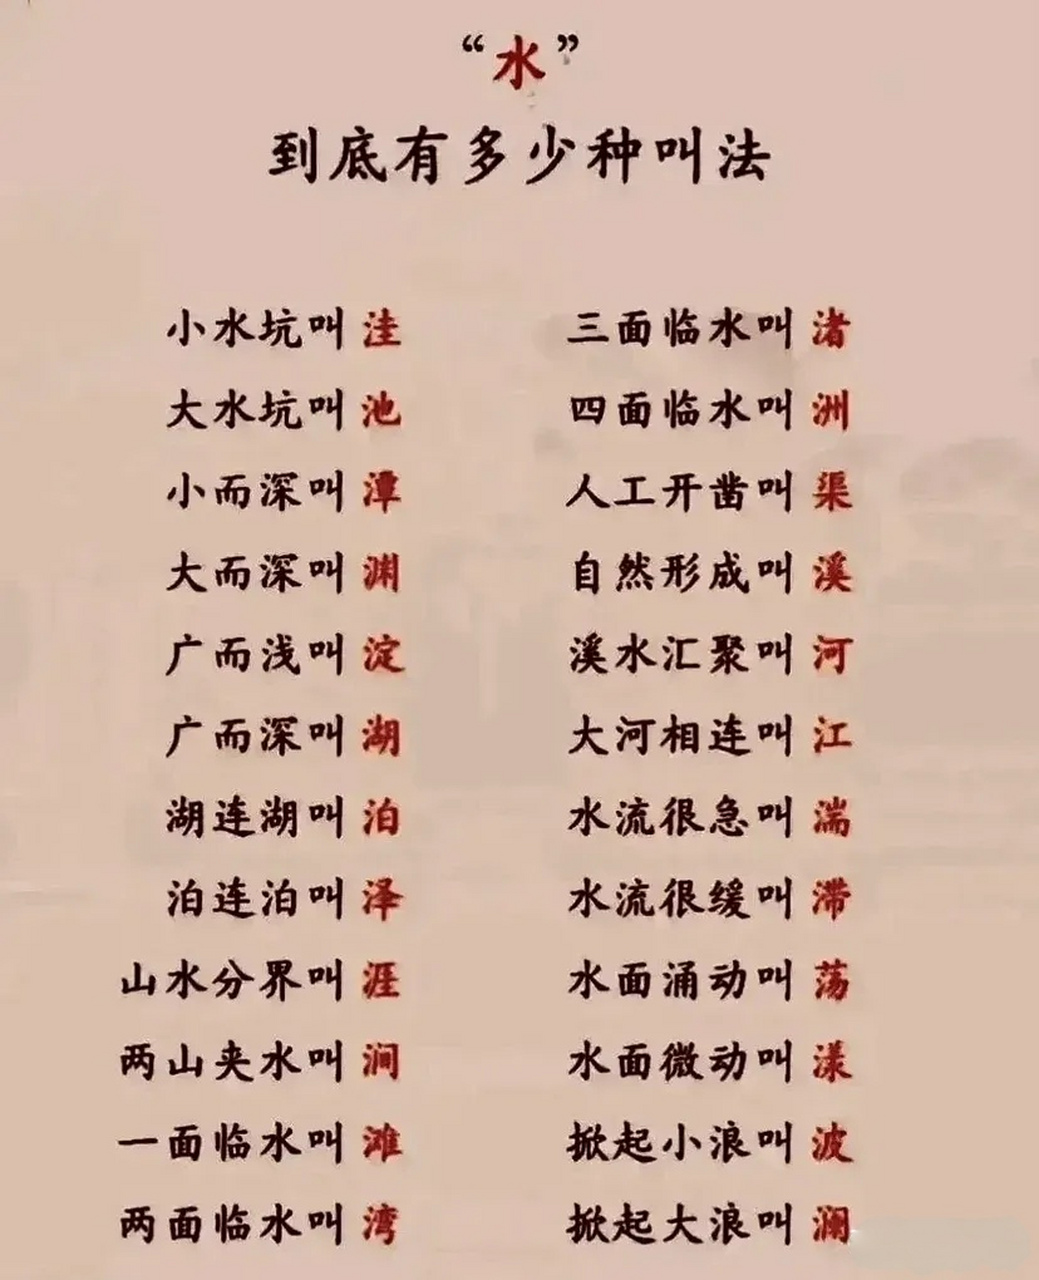 “水”
到底有多少种叫法
小水坑叫 洼
大水坑叫 池
小而深叫 潭
大而深叫 渊
广而浅叫 淀
广而深叫 湖
湖连湖叫 泊
泊连泊叫 泽
山水分界叫 涯
两山夹水叫 涧
一面临水叫 滩
两面临水叫 湾
三面临水叫 渚
四面临水叫 洲
人工开凿叫 渠
自然形成叫 溪
溪水汇聚叫 河
大河相连叫 江
水流很急叫 湍
水流很缓叫 滞
水面涌动叫 荡
水面微动叫 漾
掀起小浪叫 波
掀起大浪叫 澜